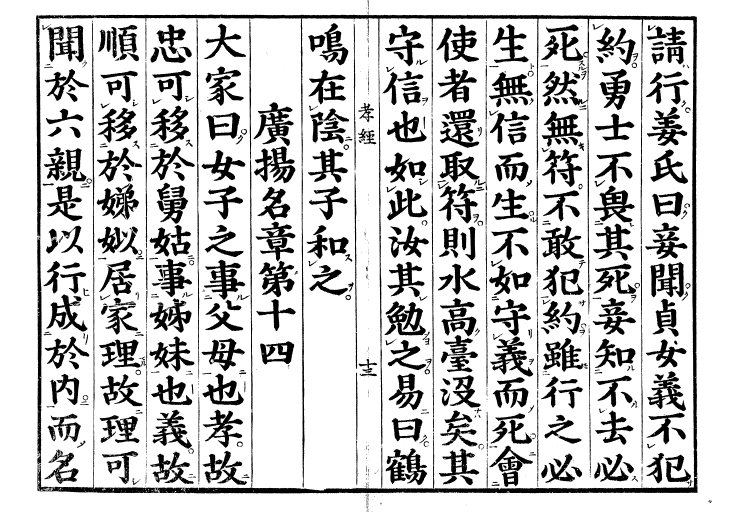 請行姜氏曰妾聞貞女義不犯
約勇士不畏其死妾知不去必
死然無符不敢犯約雖行之必
生無信而生不如守義而死會
使者還取符則水高臺没矣其
守信也如此汝其勉之易曰鶴
鳴在陰其子和之
孝經
十三
廣揚名章第十四
大家曰女子之事父母也孝故
忠可移於舅姑事姊妹也義故
順可移於娣姒居家理故理可
聞於六親是以行成於内而名